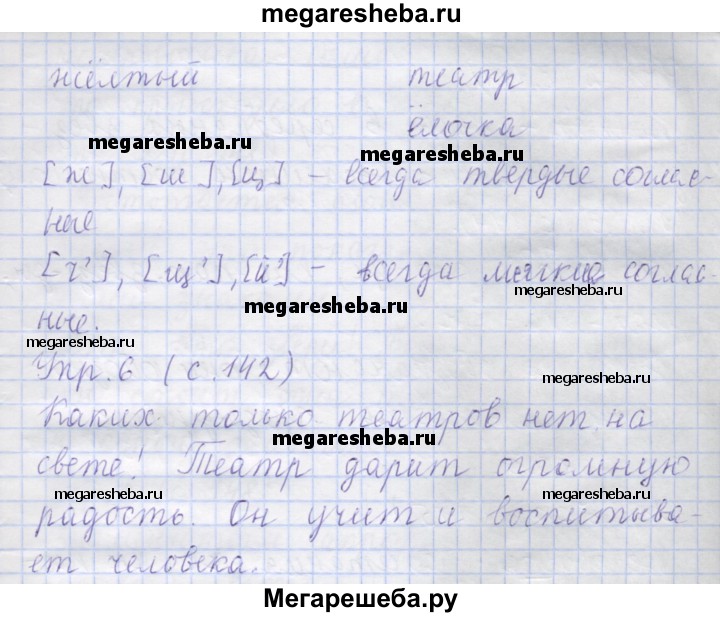 megaresheba.ru
жёлтый театр
ёлочка
megaresheba.ru
megaresheba.ru
[ж], [ш], [ц] - всегда твердые соглас-
ные
[ч'], [щ'], [й'] - всегда мягкие соглас-
megaresheba.ru
megaresheba.ru
ные.
megaresheba.ru
Упр. 6 (с. 142)
megaresheba.ru
Каких только театров нет на
megaresheba.ru
свете! Театр дарит огромную
megaresheba.ru
megaresheba.ru
радость. Он учит и воспитыва-
ет человека.
Мегарешеба.ру